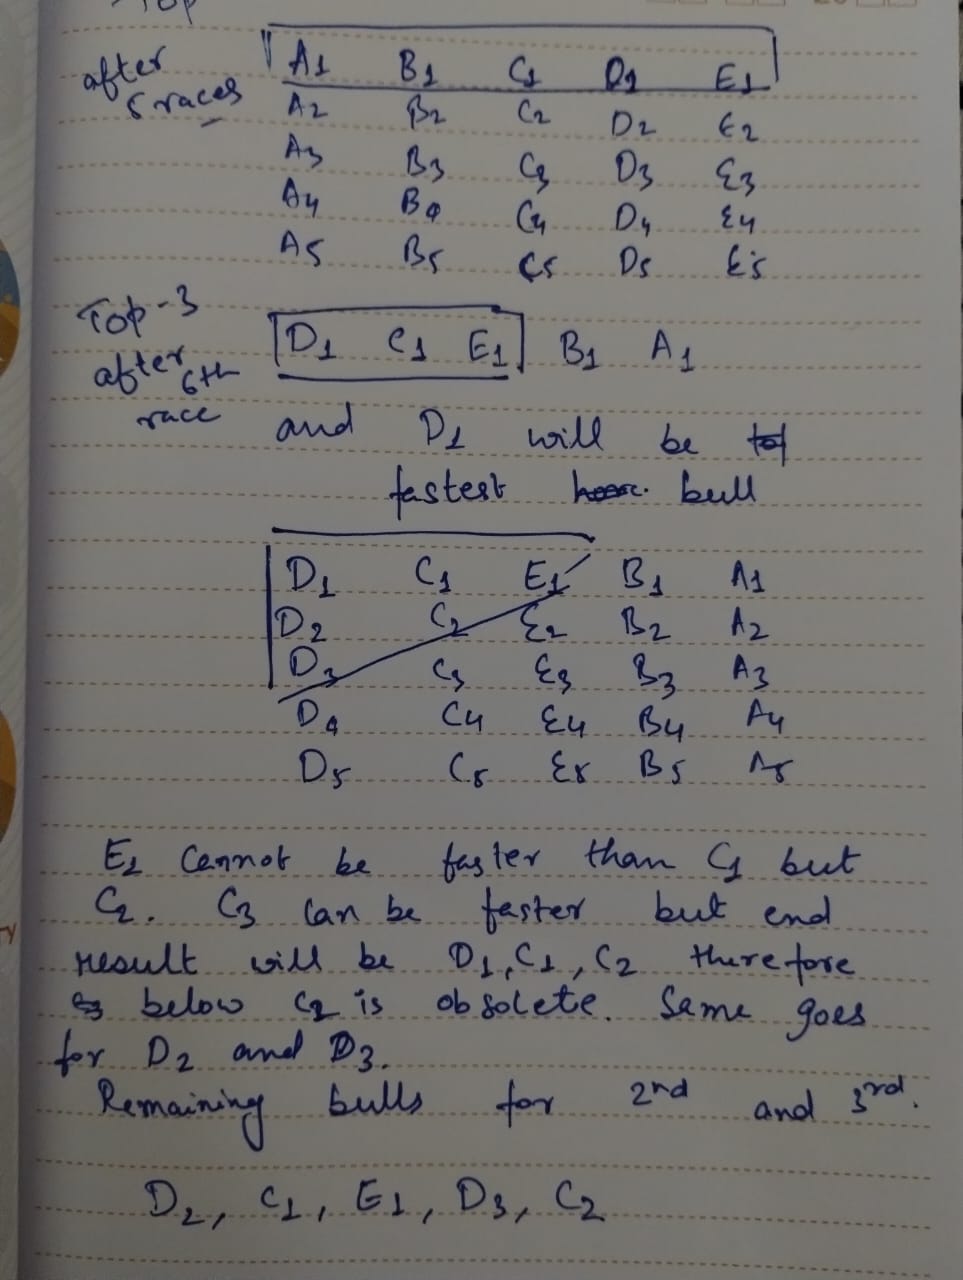 Top
after A1 B1 C1 D1 E1
5 races A2 B2 C2 D2 E2
A3 B3 C3 D3 E3
A4 B4 C4 D4 E4
A5 B5 C5 D5 E5
Top-3
after D1 C1 E1 B1 A1
6th
race and D1 will be
fastest bull
D1 C1 E1 B1 A1
D2 C2 E2 B2 A2
D3 C3 E3 B3 A3
D4 C4 E4 B4 A4
D5 C5 E5 B5 A5
E1 cannot be faster than C1 but
C2. C3 can be faster but end
result will be D1, C1, C2 therefore
below C2 is obsolete. Same goes
for D2 and D3.
Remaining bulls for 2nd and 3rd.
D2, C1, E1, D3, C2